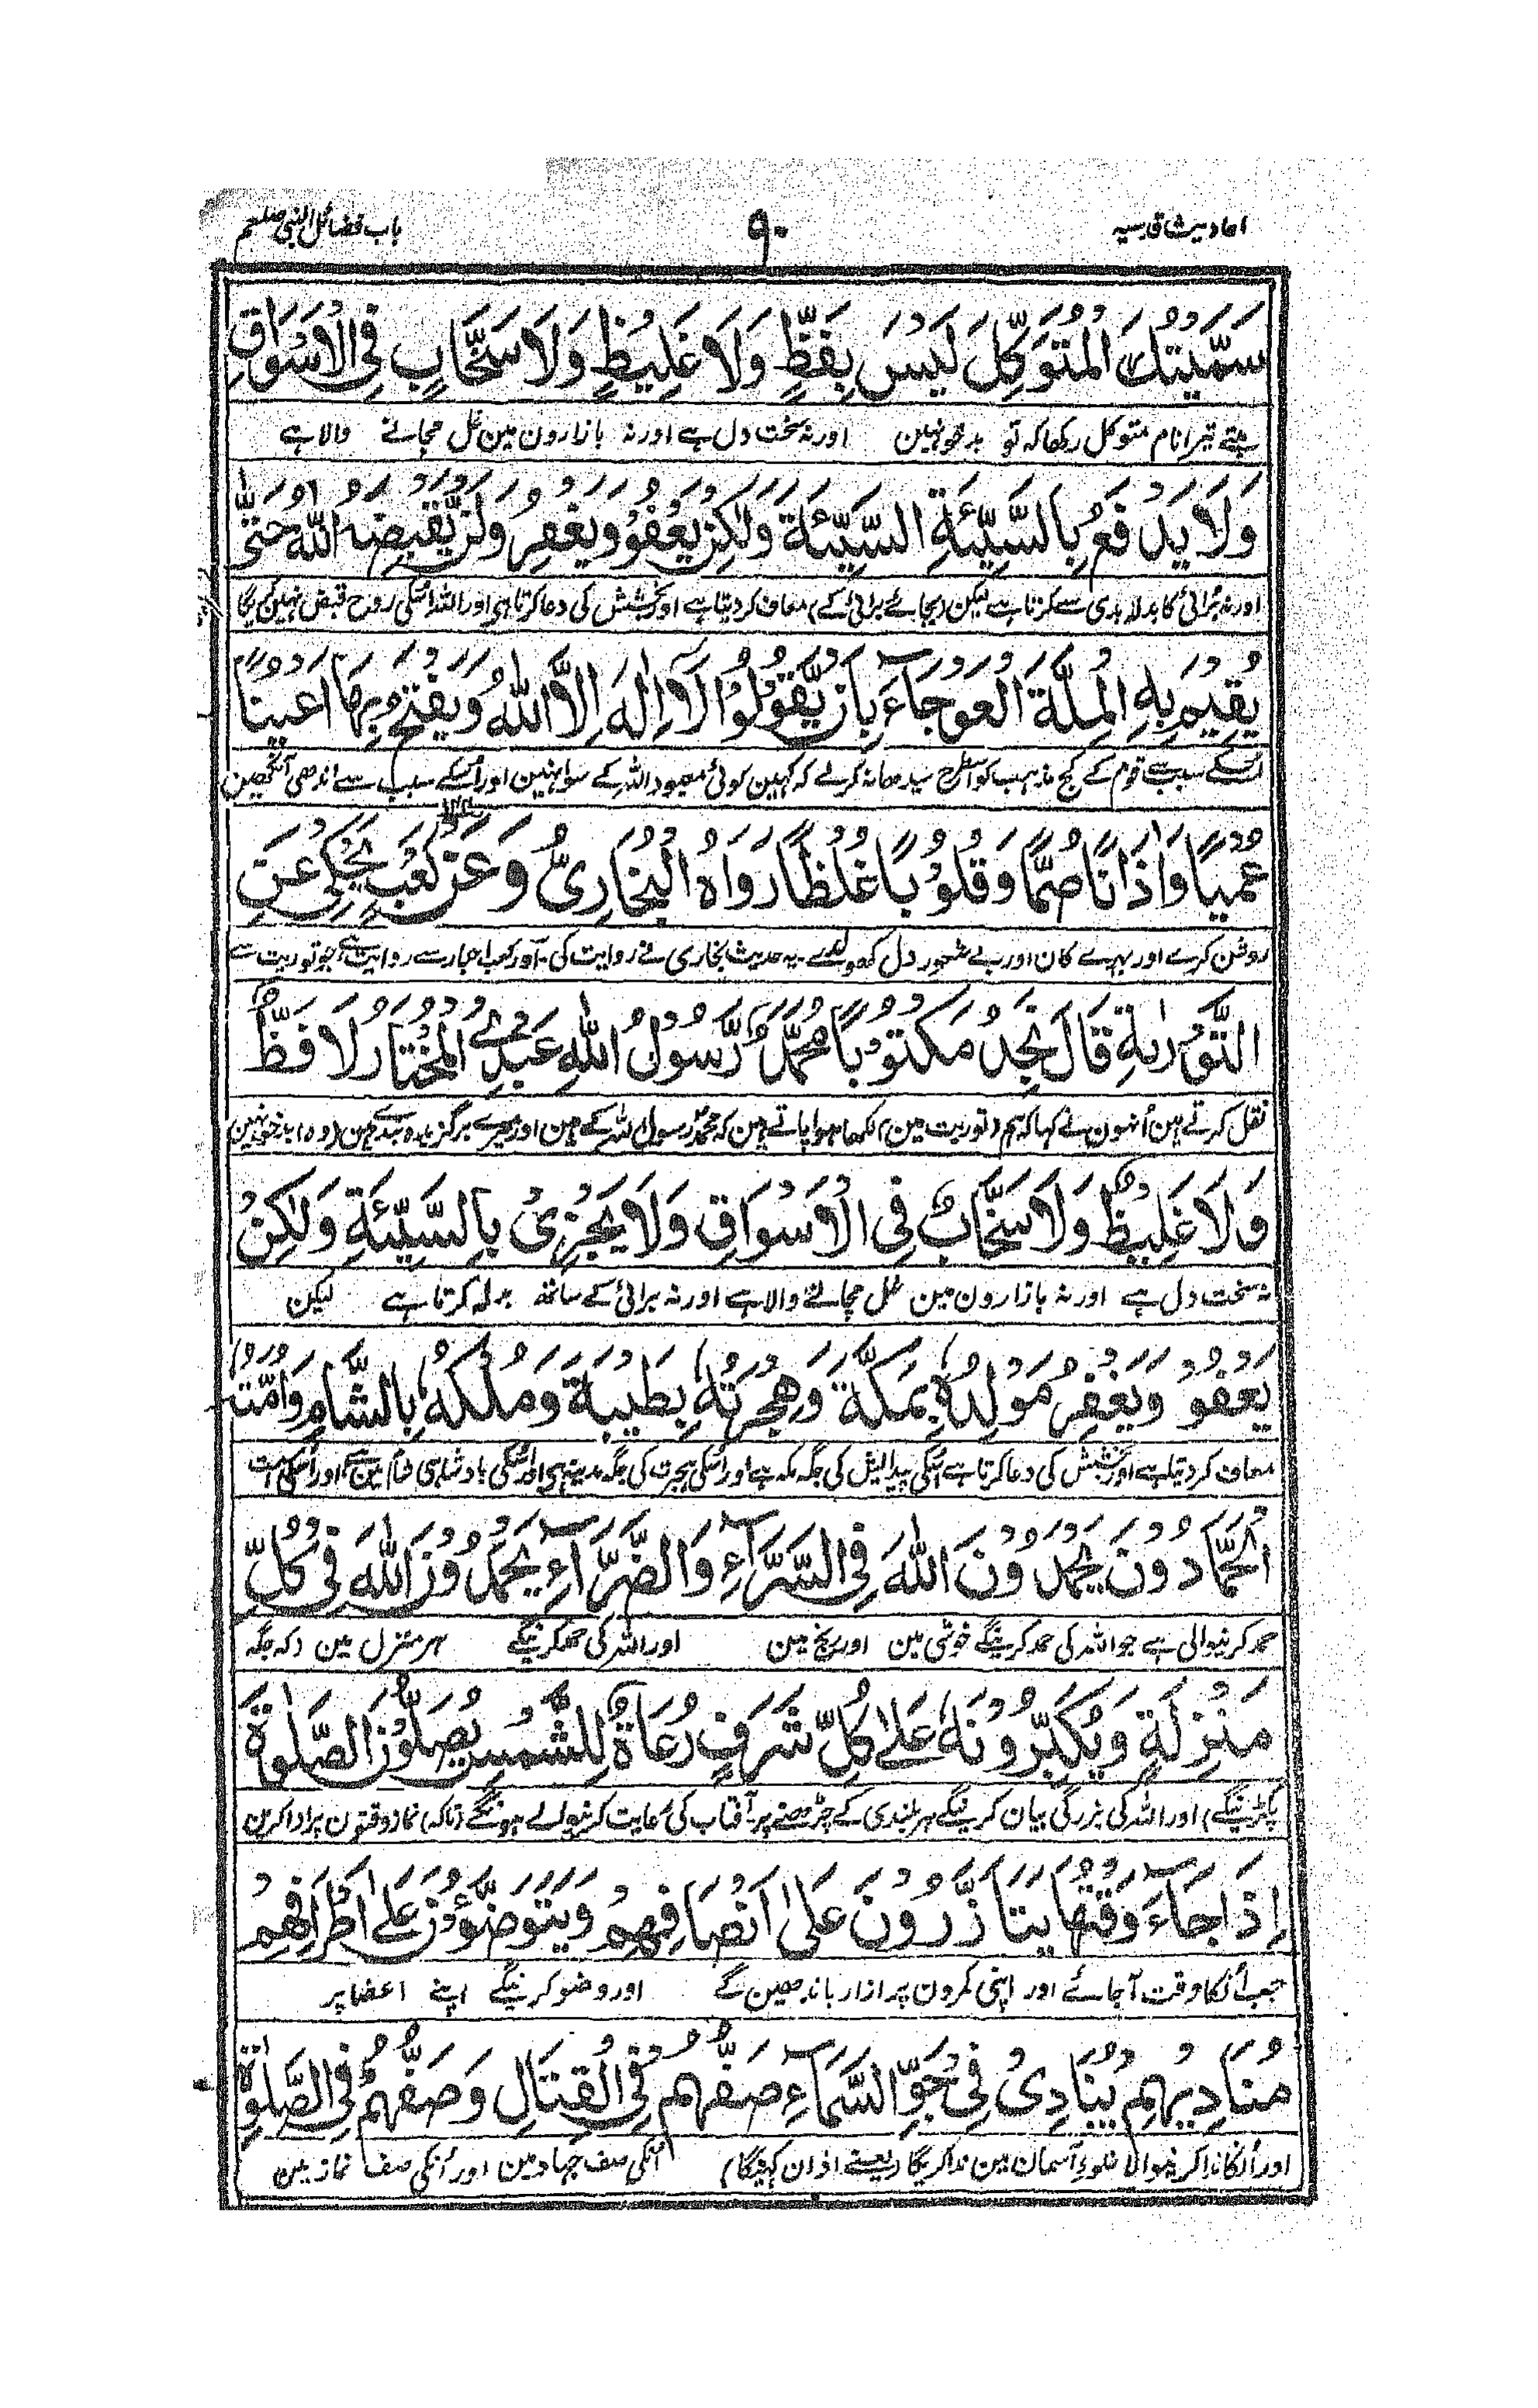 احادیث قدسیہ ۹۰ باب فضائل النبی صلعم
سَمَّيْتُكَ الْمُتَوَكِّلَ لَيْسَ بِفَظٍّ وَلَا غَلِيْظٍ وَلَا سَخَّابٍ فِي الْاَسْوَاقِ
تیرا نام متوکل رکھا کہ تو بدخو نہین اور نہ سخت دل ہے اور نہ بازارون مین غل مچانے والا ہے
وَلَا يَدْفَعُ بِالسَّيِّئَةِ السَّيِّئَةَ وَلٰكِنْ يَّعْفُوْ وَيَغْفِرُ وَلَنْ يَّقْبِضَهُ اللّٰهُ حَتّٰى
اور نہ برائی کا بدلا بدی سے کرتا ہے لیکن (بجائے برائی کے) معاف کر دیتا ہے اور بخشش کی دعا کرتا ہی اور اللہ اسکی روح قبض نہین کریگا
يُقِيْمَ بِهِ الْمِلَّةَ الْعَوْجَآءَ بِاَنْ يَّقُوْلُوْا لَآ اِلٰهَ اِلَّا اللّٰهُ وَيَفْتَحُ بِهَا اَعْيُنًا
اسکے سبب سے قوم کے کج مذہب کو اسطرح سیدھا نہ کرلے کہ کہین کوئی معبود اللہ کے سوا نہین اور اُسکے سبب سے اندھی آنکھین
عُمْيًا وَاٰذَانًا صُمًّا وَقُلُوْبًا غُلْفًا رَوَاهُ الْبُخَارِيُّ وَعَنْ كَعْبٍ يَحْكِيْ عَنِ
روشن کرے اور بہرے کان اور بے شعور دل کھولدے۔ یہ حدیث بخاری نے روایت کی۔ اور کعب احبار سے روایت ہے جو توریت سے
التَّوْرٰىةِ قَالَ نَجِدُ مَكْتُوْبًا مُحَمَّدٌ رَّسُوْلُ اللّٰهِ عَبْدِيَ الْمُخْتَارُ لَا فَظٌّ
نقل کرتے ہین اُنہون نے کہا کہ ہم (توریت مین) لکھا ہوا پاتے ہین کہ محمد رسول اللہ کے ہین اور میرے برگزیدہ بندے ہین (وہ) بدخو نہین
وَلَا غَلِيْظٌ وَلَا سَخَّابٌ فِي الْاَسْوَاقِ وَلَا يَجْزِيْ بِالسَّيِّئَةِ وَلٰكِنْ
نہ سخت دل ہے اور نہ بازارون مین غل مچانے والا ہے اور نہ برائی کے ساتھ بدلہ کرتا ہے لیکن
يَعْفُوْ وَيَغْفِرُ مَوْلِدُهٗ بِمَكَّةَ وَهِجْرَتُهٗ بِطَيْبَةَ وَمُلْكُهٗ بِالشَّامِ وَاُمَّتُهُ
معاف کر دیتا ہے اور بخشش کی دعا کرتا ہے اُسکی پیدائش کی جگہ مکہ ہے اور اُسکی ہجرت کی جگہ مدینہ ہی اور اُسکی بادشاہی شام مین ہے اور اُسکی امت
الْحَمَّادُوْنَ يَحْمَدُوْنَ اللّٰهَ فِي السَّرَّآءِ وَالضَّرَّآءِ يَحْمَدُوْنَ اللّٰهَ فِيْ كُلِّ
حمد کرنیوالی ہے جو اللہ کی حمد کرینگے خوشی مین اور رنج مین اور اللہ کی حمد کرینگے ہر منزل مین (کہ جگہ
مَنْزِلَةٍ وَيُكَبِّرُوْنَهٗ عَلٰى كُلِّ شَرَفٍ رُعَاةٌ لِلشَّمْسِ يُصَلُّوْنَ الصَّلٰوةَ
پکڑینگے) اور اللہ کی بزرگی بیان کرینگے ہر بلندی کے چڑھنے پر۔ آفتاب کی رعایت کرنیوالے ہونگے (تاکہ) نماز وقتون پر ادا کرین
اِذَا جَآءَ وَقْتُهَا يَتَاَزَّرُوْنَ عَلٰى اَنْصَافِهِمْ وَيَتَوَضَّؤُنَ عَلٰى اَطْرَافِهِمْ
جب اُنکا وقت آجائے اور اپنی کمرون پر ازار باندھین گے اور وضو کرینگے اپنے اعضا پر
مُنَادِيْهِمْ يُنَادِيْ فِيْ جَوِّ السَّمَآءِ صَفُّهُمْ فِي الْقِتَالِ وَصَفُّهُمْ فِي الصَّلٰوةِ
اور اُنکا ندا کرنیوالا خلوءِ آسمان مین ندا کریگا (یعنے اذان کہیگا) اُنکی صف جہاد مین اور اُنکی صف نماز مین